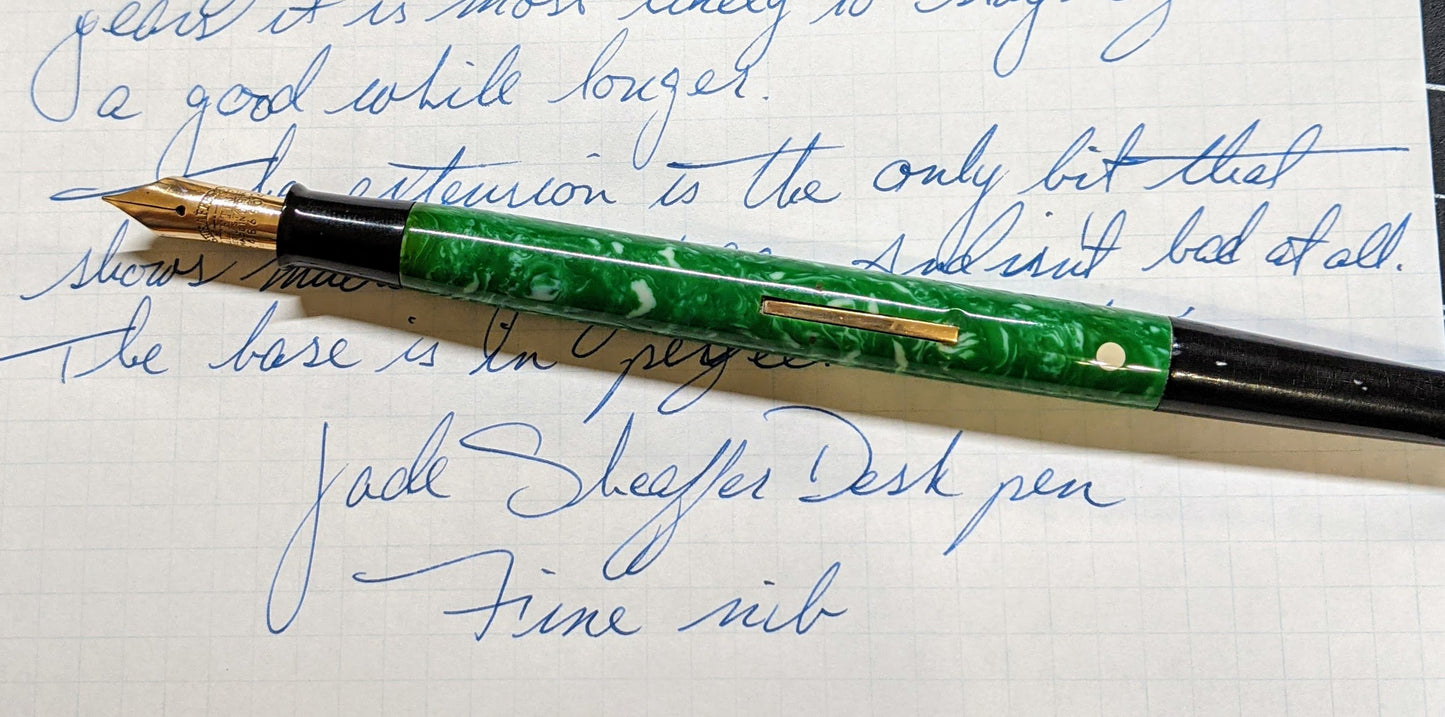 years it is most likely to
a good while longer.
The extension is the only bit that
shows and isn't bad at all.
The base is in
Jade Sheaffer Desk pen
Fine nib